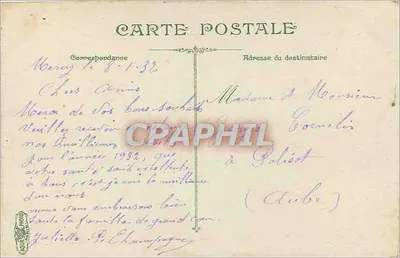 CARTE POSTALE
Correspondance
Adresse du destinataire
le 8-1-32
Chers Amis
Merci de vos bons souhaits
Veuillez recevoir
nos meilleurs
pour l'année 1932, que
votre santé soit excellente
à tous c'est je crois le meilleur
don nous
nous vous embrassons bien
toute la famille de grand cœur
Juliette P. Champagne
Madame & Monsieur
Cornélis
à Polisot
(Aube)
CPAPHIL